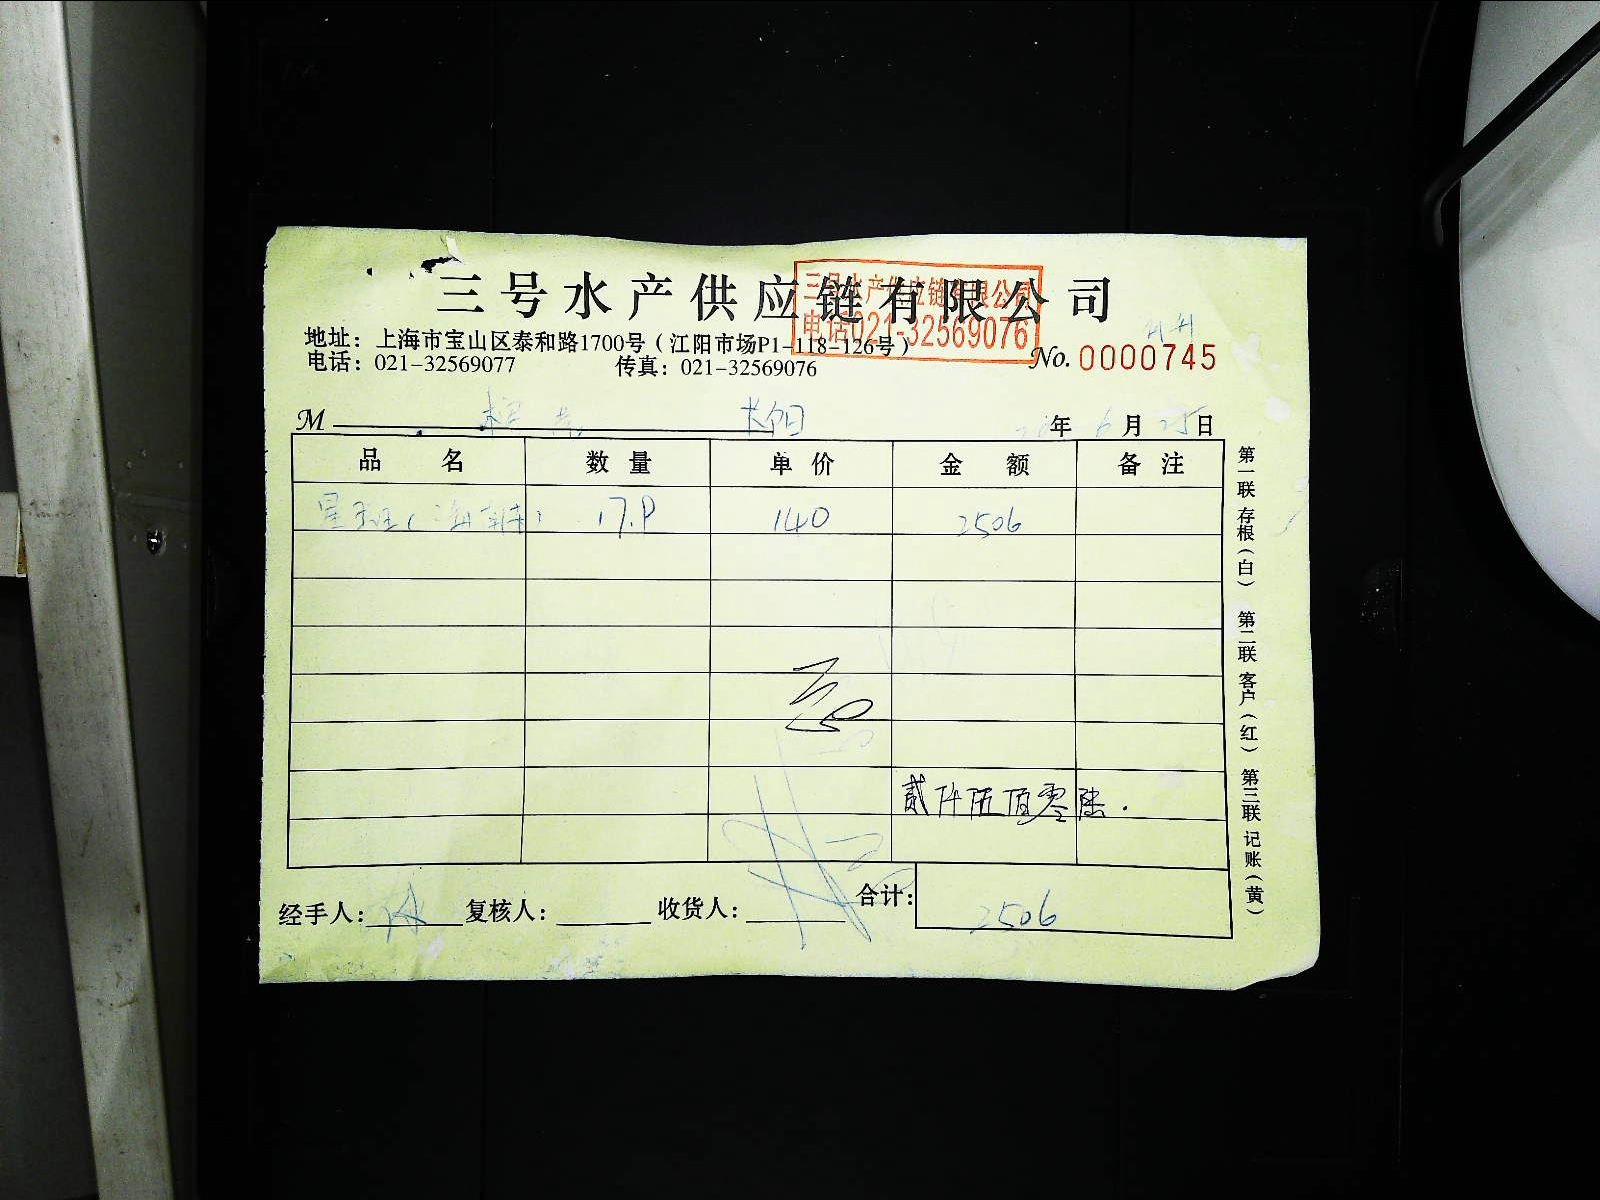 三号水产供应链有限公司
三号水产供应链有限公司
电话021-32569076
地址：上海市宝山区泰和路1700号（江阳市场P1-118-126号）
电话：021-32569077 传真：021-32569076
No. 0000745
M 年 6 月 25 日
品 名 数 量 单 价 金 额 备 注
星斑（海南 17.9 140 2506
贰仟伍佰零陆.
合计：2506
经手人： 复核人： 收货人：
第一联 存根（白） 第二联 客户（红） 第三联 记账（黄）